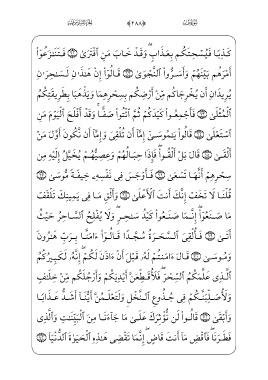 كَذِبًا فَيُسْحِتَكُم بِعَذَابٍ وَقَدْ خَابَ مَنِ افْتَرَىٰ ۝ فَتَنَٰزَعُوٓا۟
أَمْرَهُم بَيْنَهُمْ وَأَسَرُّوا۟ النَّجْوَىٰ ۝ قَالُوٓا۟ إِنْ هَٰذَٰنِ لَسَٰحِرَٰنِ
يُرِيدَانِ أَن يُخْرِجَاكُم مِّنْ أَرْضِكُم بِسِحْرِهِمَا وَيَذْهَبَا بِطَرِيقَتِكُمُ
الْمُثْلَىٰ ۝ فَأَجْمِعُوا۟ كَيْدَكُمْ ثُمَّ ائْتُوا۟ صَفًّا وَقَدْ أَفْلَحَ الْيَوْمَ مَنِ
اسْتَعْلَىٰ ۝ قَالُوا۟ يَٰمُوسَىٰٓ إِمَّآ أَن تُلْقِىَ وَإِمَّآ أَن نَّكُونَ أَوَّلَ مَنْ
أَلْقَىٰ ۝ قَالَ بَلْ أَلْقُوا۟ فَإِذَا حِبَالُهُمْ وَعِصِيُّهُمْ يُخَيَّلُ إِلَيْهِ مِن
سِحْرِهِمْ أَنَّهَا تَسْعَىٰ ۝ فَأَوْجَسَ فِى نَفْسِهِۦ خِيفَةً مُّوسَىٰ ۝
قُلْنَا لَا تَخَفْ إِنَّكَ أَنتَ الْأَعْلَىٰ ۝ وَأَلْقِ مَا فِى يَمِينِكَ تَلْقَفْ
مَا صَنَعُوٓا۟ إِنَّمَا صَنَعُوا۟ كَيْدُ سَٰحِرٍ وَلَا يُفْلِحُ السَّاحِرُ حَيْثُ
أَتَىٰ ۝ فَأُلْقِىَ السَّحَرَةُ سُجَّدًا قَالُوٓا۟ ءَامَنَّا بِرَبِّ هَٰرُونَ
وَمُوسَىٰ ۝ قَالَ ءَامَنتُمْ لَهُۥ قَبْلَ أَنْ ءَاذَنَ لَكُمْ إِنَّهُۥ لَكَبِيرُكُمُ
الَّذِى عَلَّمَكُمُ السِّحْرَ فَلَأُقَطِّعَنَّ أَيْدِيَكُمْ وَأَرْجُلَكُم مِّنْ خِلَٰفٍ
وَلَأُصَلِّبَنَّكُمْ فِى جُذُوعِ النَّخْلِ وَلَتَعْلَمُنَّ أَيُّنَآ أَشَدُّ عَذَابًا
وَأَبْقَىٰ ۝ قَالُوا۟ لَن نُّؤْثِرَكَ عَلَىٰ مَا جَآءَنَا مِنَ الْبَيِّنَٰتِ وَالَّذِى
فَطَرَنَا فَاقْضِ مَآ أَنتَ قَاضٍ إِنَّمَا تَقْضِى هَٰذِهِ الْحَيَوٰةَ الدُّنْيَآ ۝